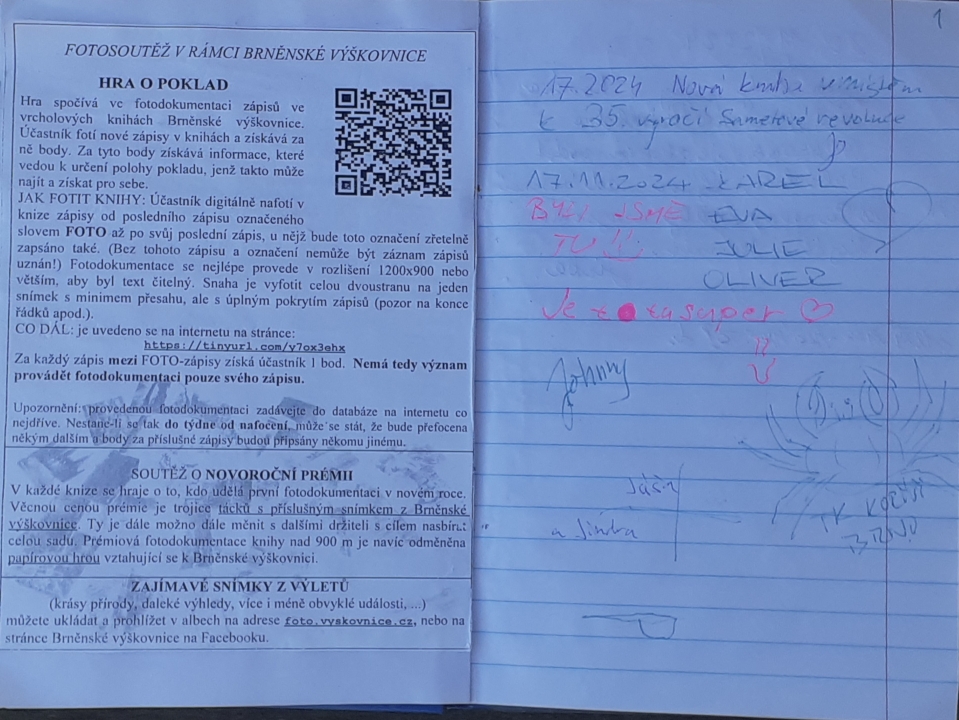 FOTOSOUTĚŽ V RÁMCI BRNĚNSKÉ VÝŠKOVNICE
HRA O POKLAD
Hra spočívá ve fotodokumentaci zápisů ve
vrcholových knihách Brněnské výškovnice.
Účastník fotí nové zápisy v knihách a získává za
ně body. Za tyto body získává informace, které
vedou k určení polohy pokladu, jenž takto může
najít a získat pro sebe.
JAK FOTIT KNIHY: Účastník digitálně nafotí v
knize zápisy od posledního zápisu označeného
slovem FOTO až po svůj poslední zápis, u nějž bude toto označení zřetelně
zapsáno také. (Bez tohoto zápisu a označení nemůže být záznam zápisů
uznán!) Fotodokumentace se nejlépe provede v rozlišení 1200x900 nebo
větším, aby byl text čitelný. Snaha je vyfotit celou dvoustranu na jeden
snímek s minimem přesahu, ale s úplným pokrytím zápisů (pozor na konce
řádků apod.).
CO DÁL: je uvedeno se na internetu na stránce:
https://tinyurl.com/y7ox3ehx
Za každý zápis mezi FOTO-zápisy získá účastník 1 bod. Nemá tedy význam
provádět fotodokumentaci pouze svého zápisu.
Upozornění: provedenou fotodokumentaci zadávejte do databáze na internetu co
nejdříve. Nestane-li se tak do týdne od nafocení, může se stát, že bude přefocena
někým dalším a body za příslušné zápisy budou připsány někomu jinému.
SOUTĚŽ O NOVOROČNÍ PRÉMII
V každé knize se hraje o to, kdo udělá první fotodokumentaci v novém roce.
Věcnou cenou prémie je trojice tácků s příslušným snímkem z Brněnské
výškovnice. Ty je dále možno dále měnit s dalšími držiteli s cílem nasbírat
celou sadu. Prémiová fotodokumentace knihy nad 900 m je navíc odměněna
papírovou hrou vztahující se k Brněnské výškovnici.
ZAJÍMAVÉ SNÍMKY Z VÝLETŮ
(krásy přírody, daleké výhledy, více i méně obvyklé události, ...)
můžete ukládat a prohlížet v albech na adrese foto.vyskovnice.cz, nebo na
stránce Brněnské výškovnice na Facebooku.
1
17.2024 Nová kniha umístěna
k 35. výročí Sametové revoluce
17.11.2024 KAREL
BYLI JSME EVA
TU JULIE
OLIVER
Je to tu super
Johnny
Jáša
a Jindra
TK
BRNO